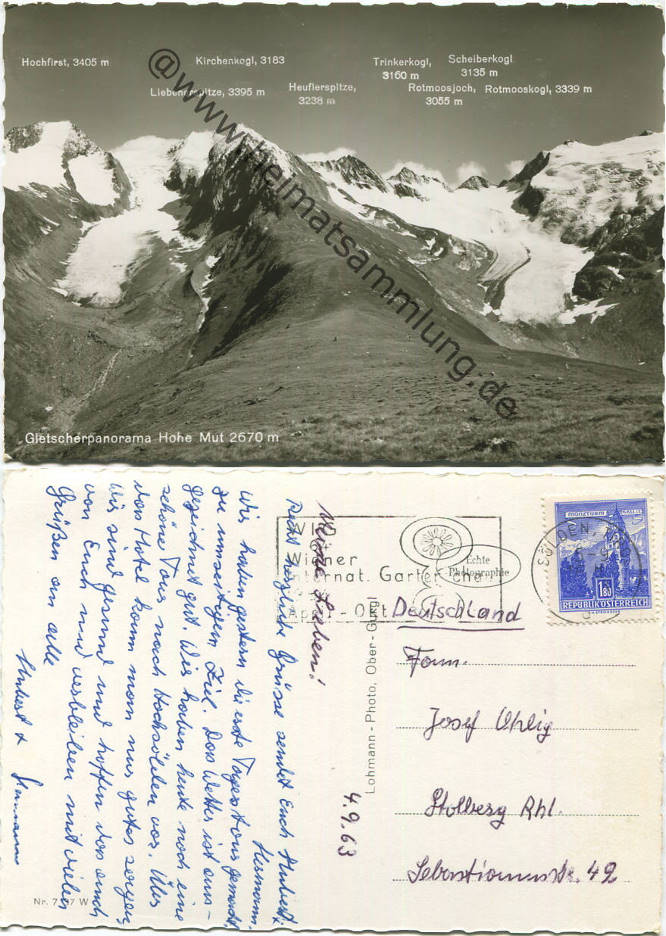 Hochfirst, 3405 m
Kirchenkogl, 3183
Trinkerkogl, 3160 m
Scheiberkogl 3135 m
Liebenerspitze, 3395 m
Heuflerspitze, 3238 m
Rotmoosjoch, 3055 m
Rotmooskogl, 3339 m
@www.heimatsammlung.de
Gletscherpanorama Hohe Mut 2670 m
Meine Lieben!
Recht herzliche Grüsse sendet Euch Hubert.
Hermann.
Wir haben gestern die erste Tagestour gemacht
zu unserigem Ziel. Das Wetter ist aus-
gezeichnet gut. Wir haben heute noch eine
schöne Tour nach Hochsölden vor. Über
das Hotel kann man nur gutes sagen,
Wir sind gesund und hoffen das auch
von Euch und verbleiben mit vielen
Grüßen an alle
Hubert + Hermann
4.9.63
Nr. 7
W
Lohmann - Photo, Ober - Gurgl
Echte Photographie
Wiener
Internat. Garten
April - Okt
SÖLDEN
1.80
REPUBLIK ÖSTERREICH
Deutschland
Fam.
Josef Uhlig
Stolberg Rhl.
Sebastianusstr. 42